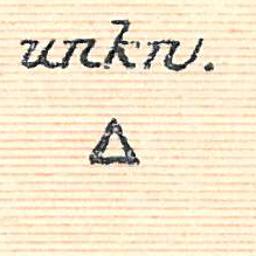 unkn.
Δ